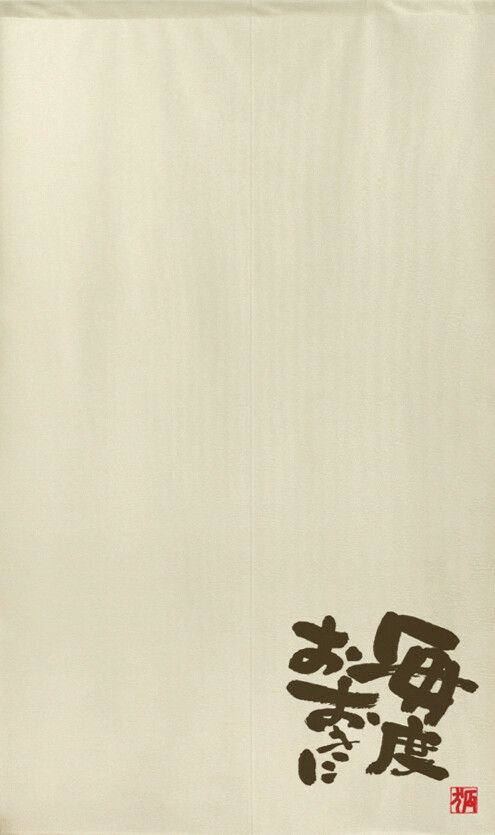 毎度
おおきに